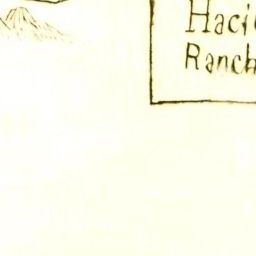 Haci
Ranch